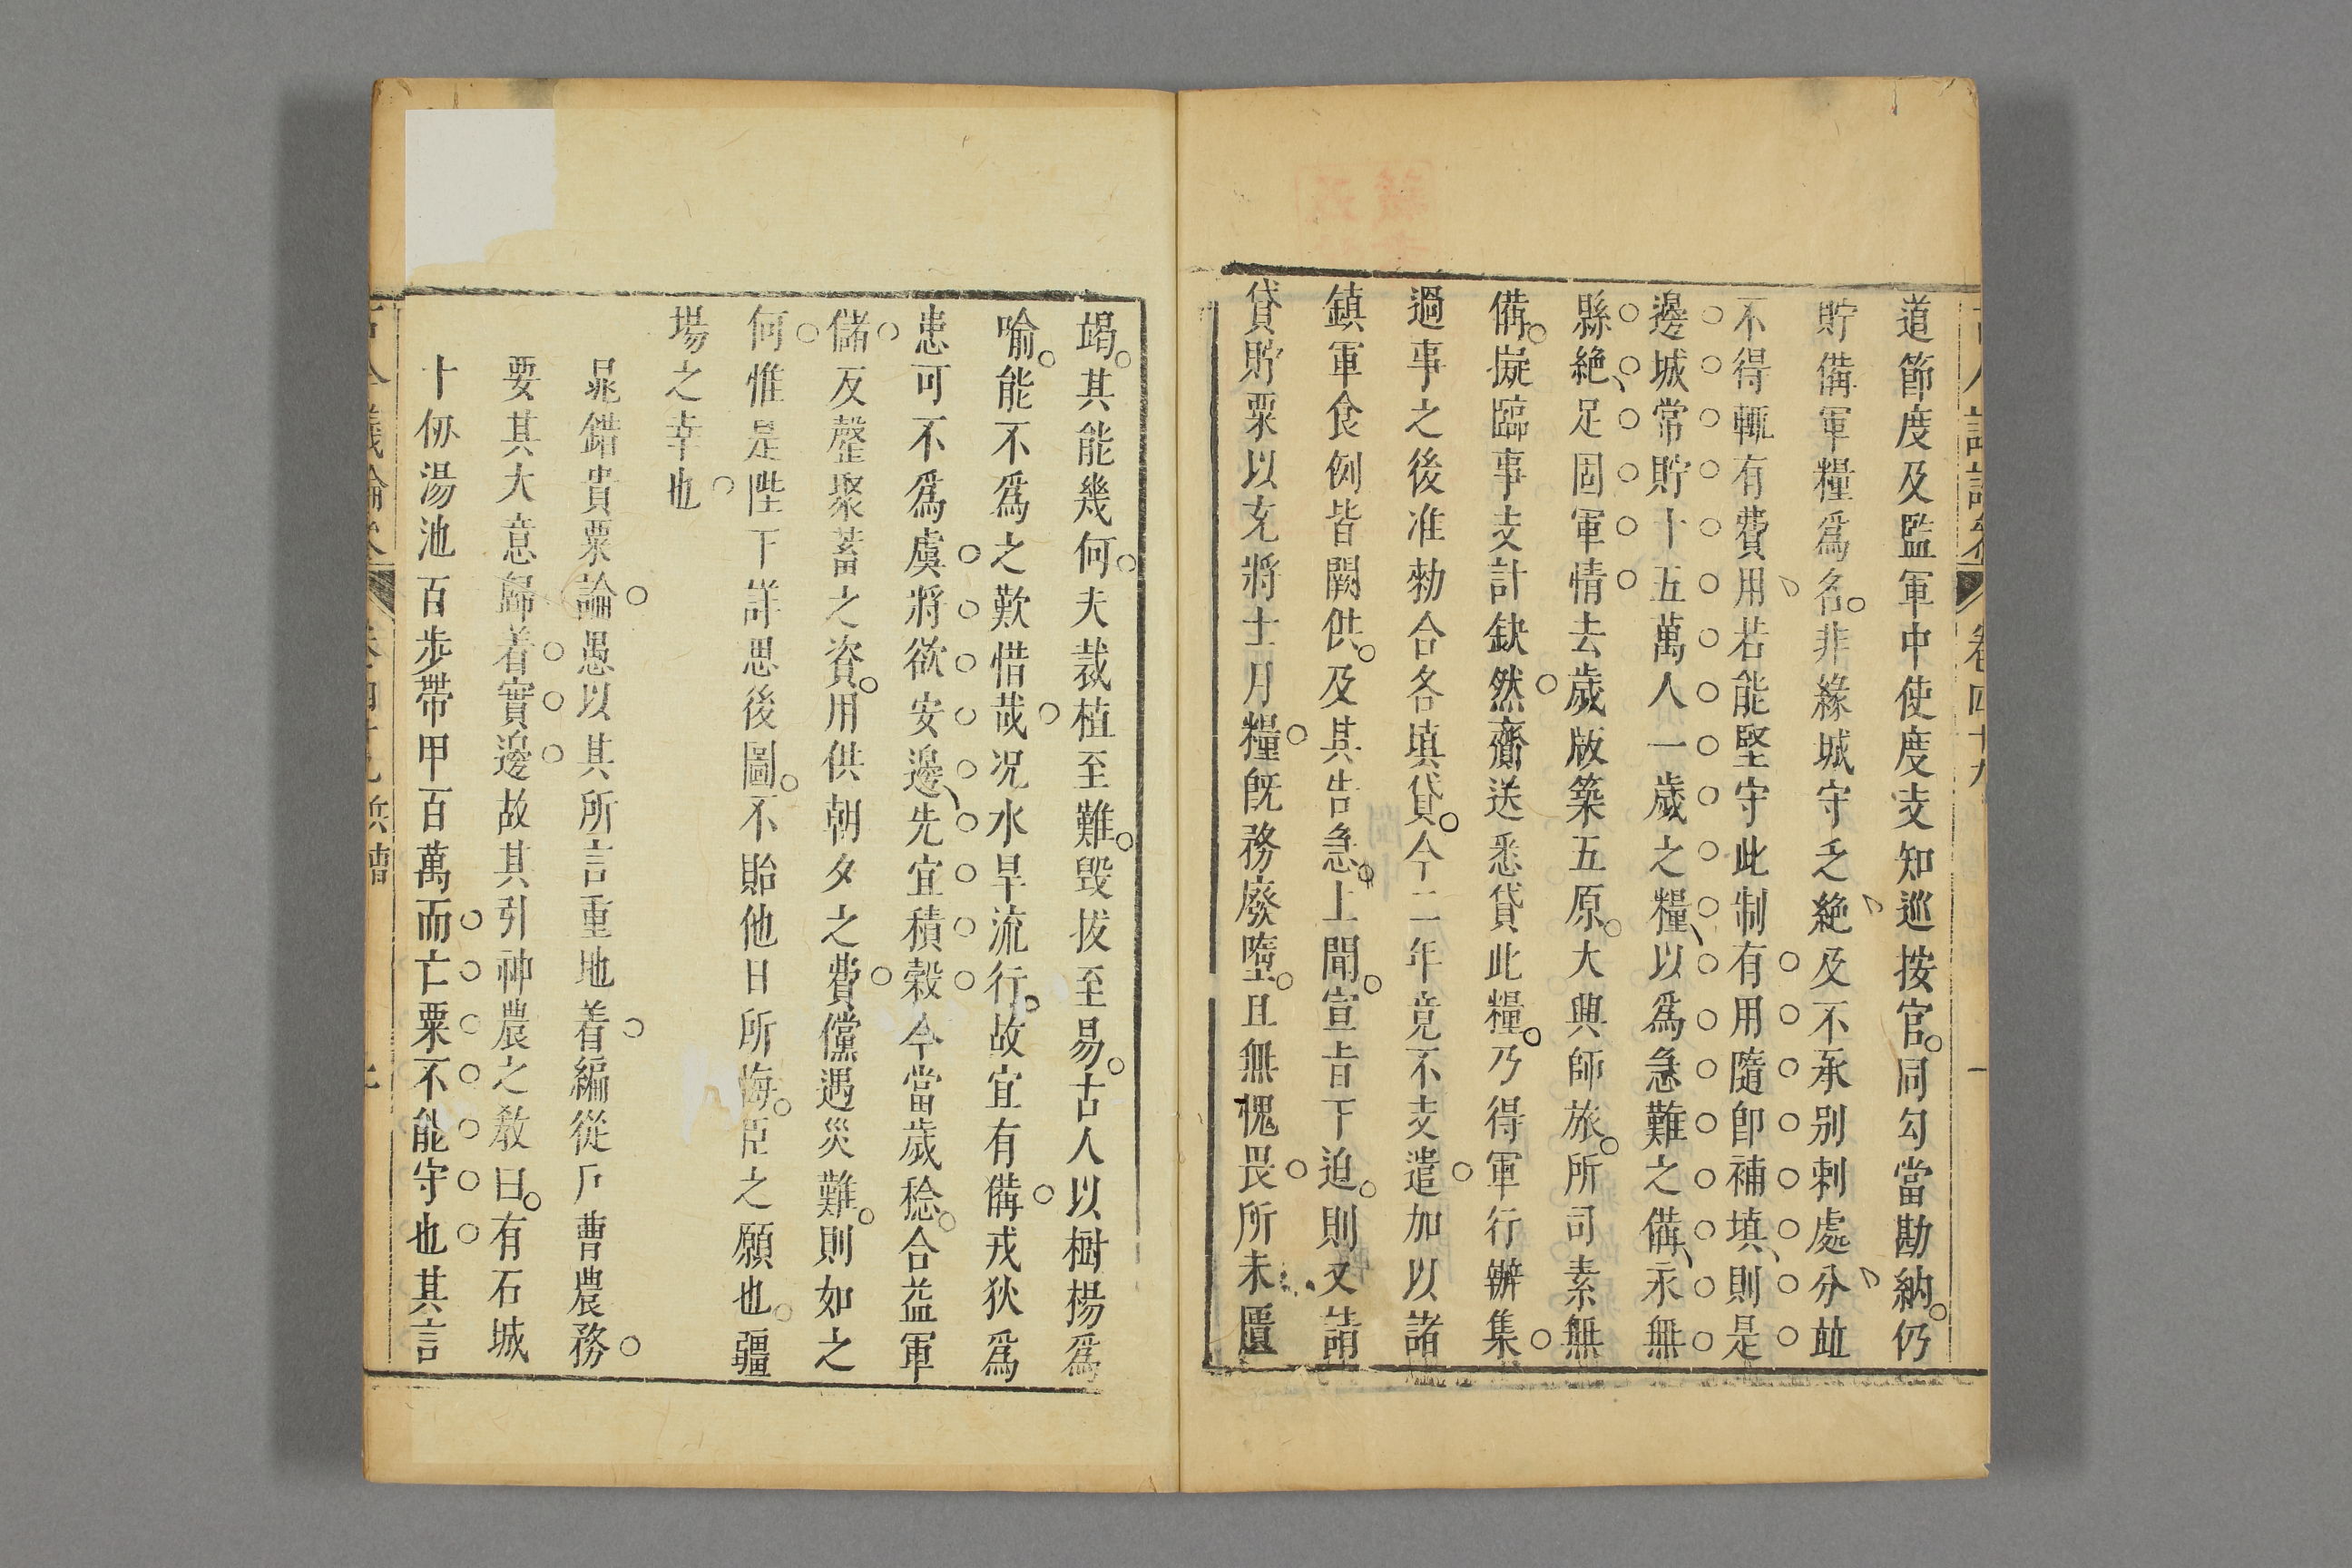 道節度及監軍中使度支知巡按官同勾當勘納仍
貯備軍糧爲名非緣城守乏絶及不承别刺處分並
不得輒有費用若能堅守此制有用隨卽補填則是
邊城常貯十五萬人一歲之糧以爲急難之備永無
縣絶足固軍情去歲版築五原大興師旅所司素無
備擬臨事支計缺然齎送悉貸此糧乃得軍行辦集
過事之後准勅合各填貸今二年竟不支遣加以諸
鎮軍食例皆闕供及其告急上聞宣旨下迫則又請
貸貯粟以充將士月糧旣務廢墮且無愧畏所未匱
竭其能幾何夫裁植至難毁拔至易古人以樹楊爲
喻能不爲之歎惜哉况水旱流行故宜有備戎狄爲
患可不爲虞將欲安邊先宜積穀今當歲稔合益軍
儲反罄聚蓄之資用供朝夕之費儻遇災難則如之
何惟是陛下詳思後圖不貽他日所悔臣之願也疆
場之幸也
晁錯貴粟論愚以其所言重地着編從戶曹農務
要其大意歸着實邊故其引神農之教曰有石城
十仞湯池百步帶甲百萬而亡粟不能守也其言